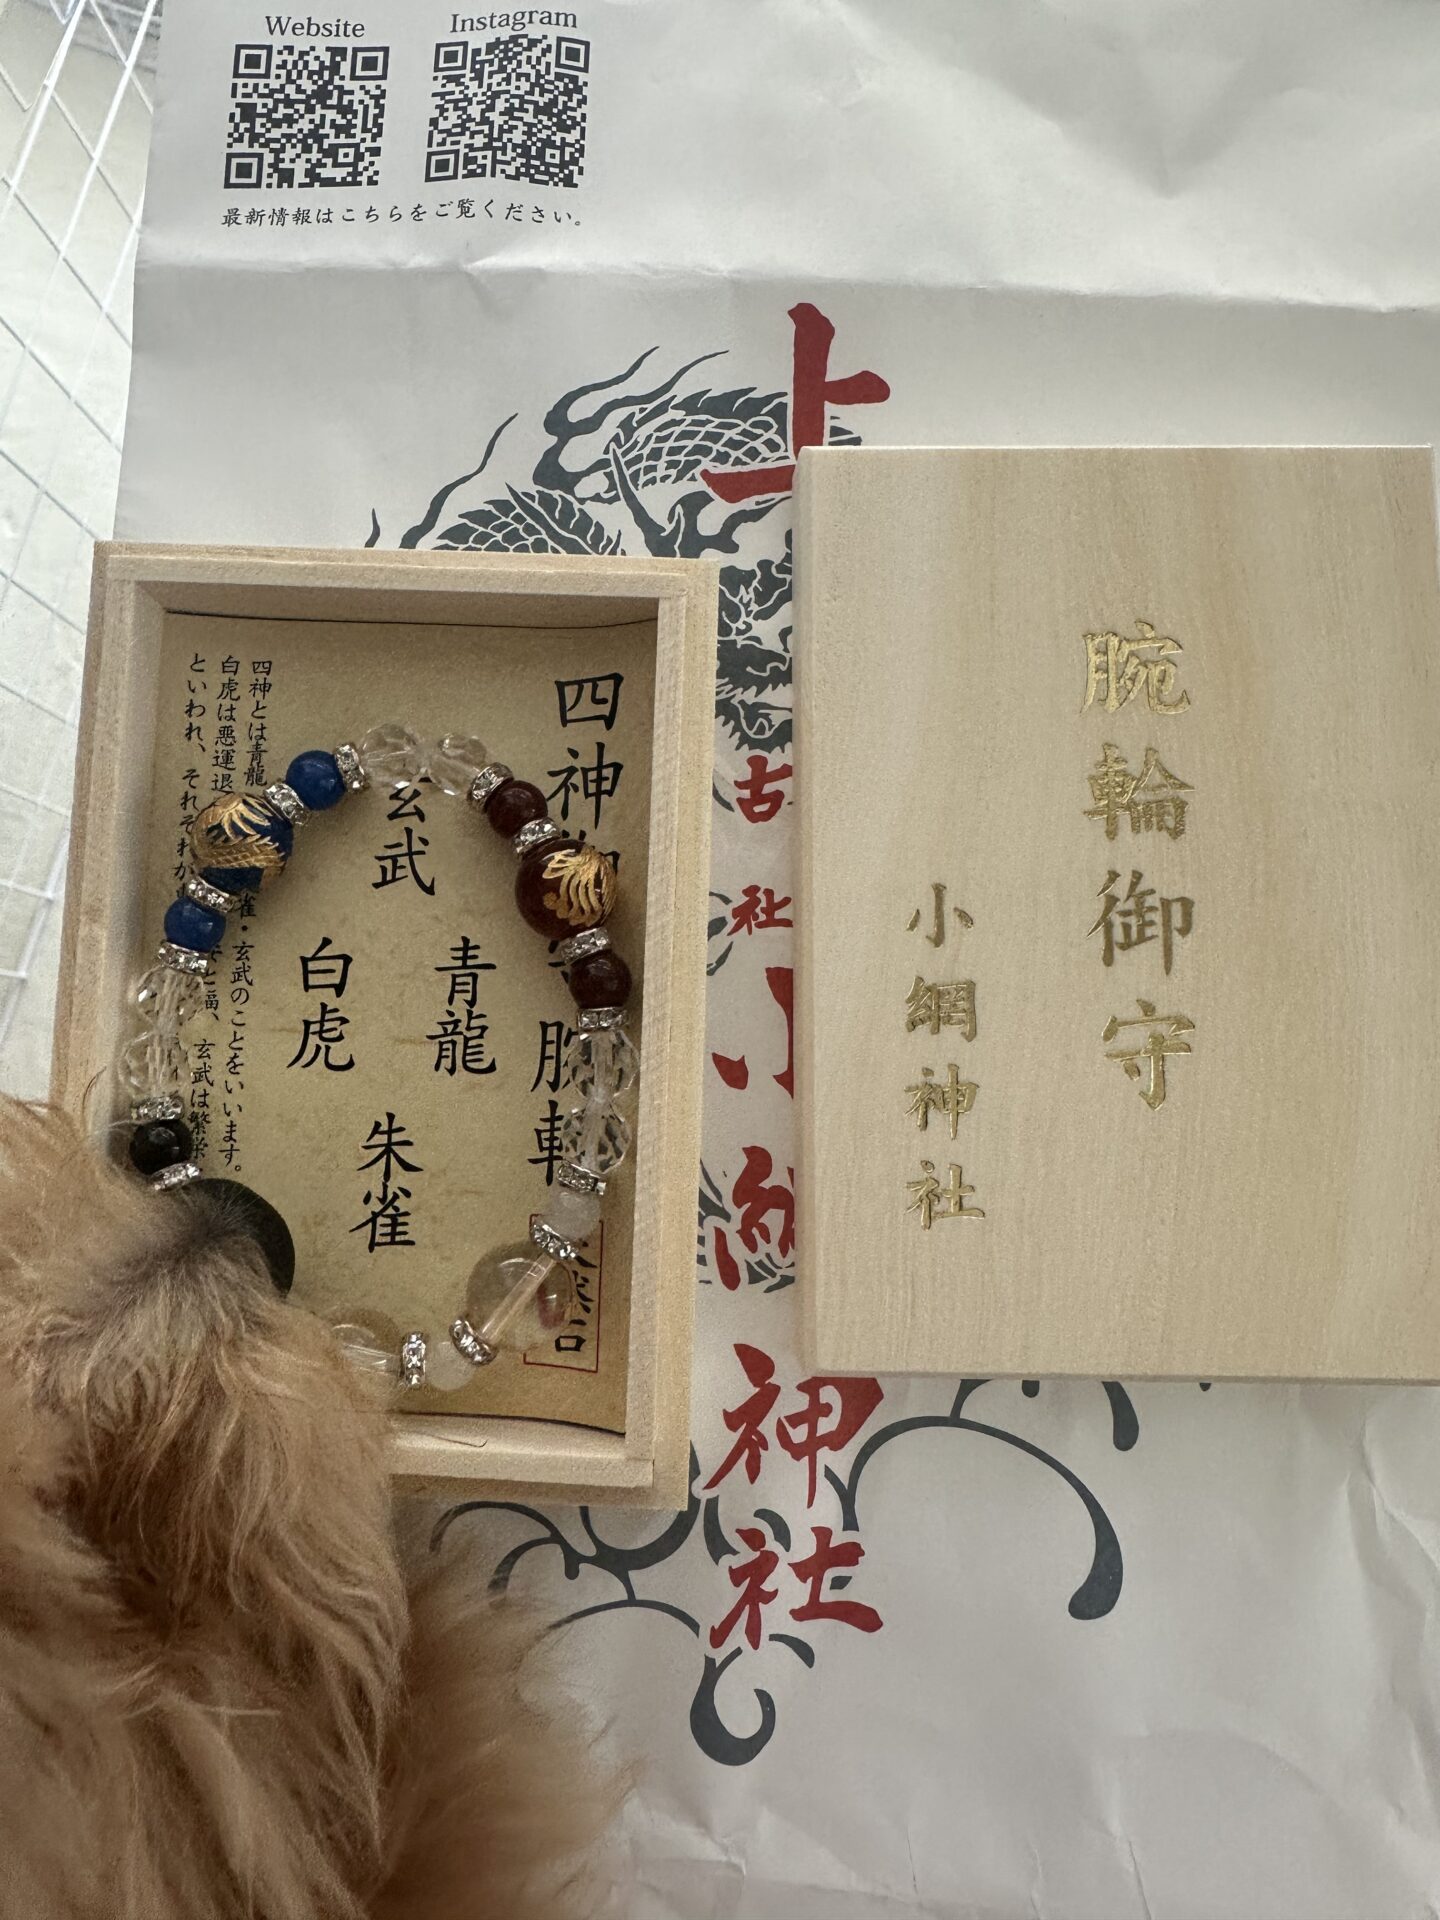 Website
Instagram
最新情報はこちらをご覧ください。
古社
神社
四神
玄武
青龍
白虎
朱雀
四神とは青龍
雀・玄武のことをいいます。
白虎は悪運退
玄武は繁栄
といわれ、それぞれが
腕輪御守
小網神社